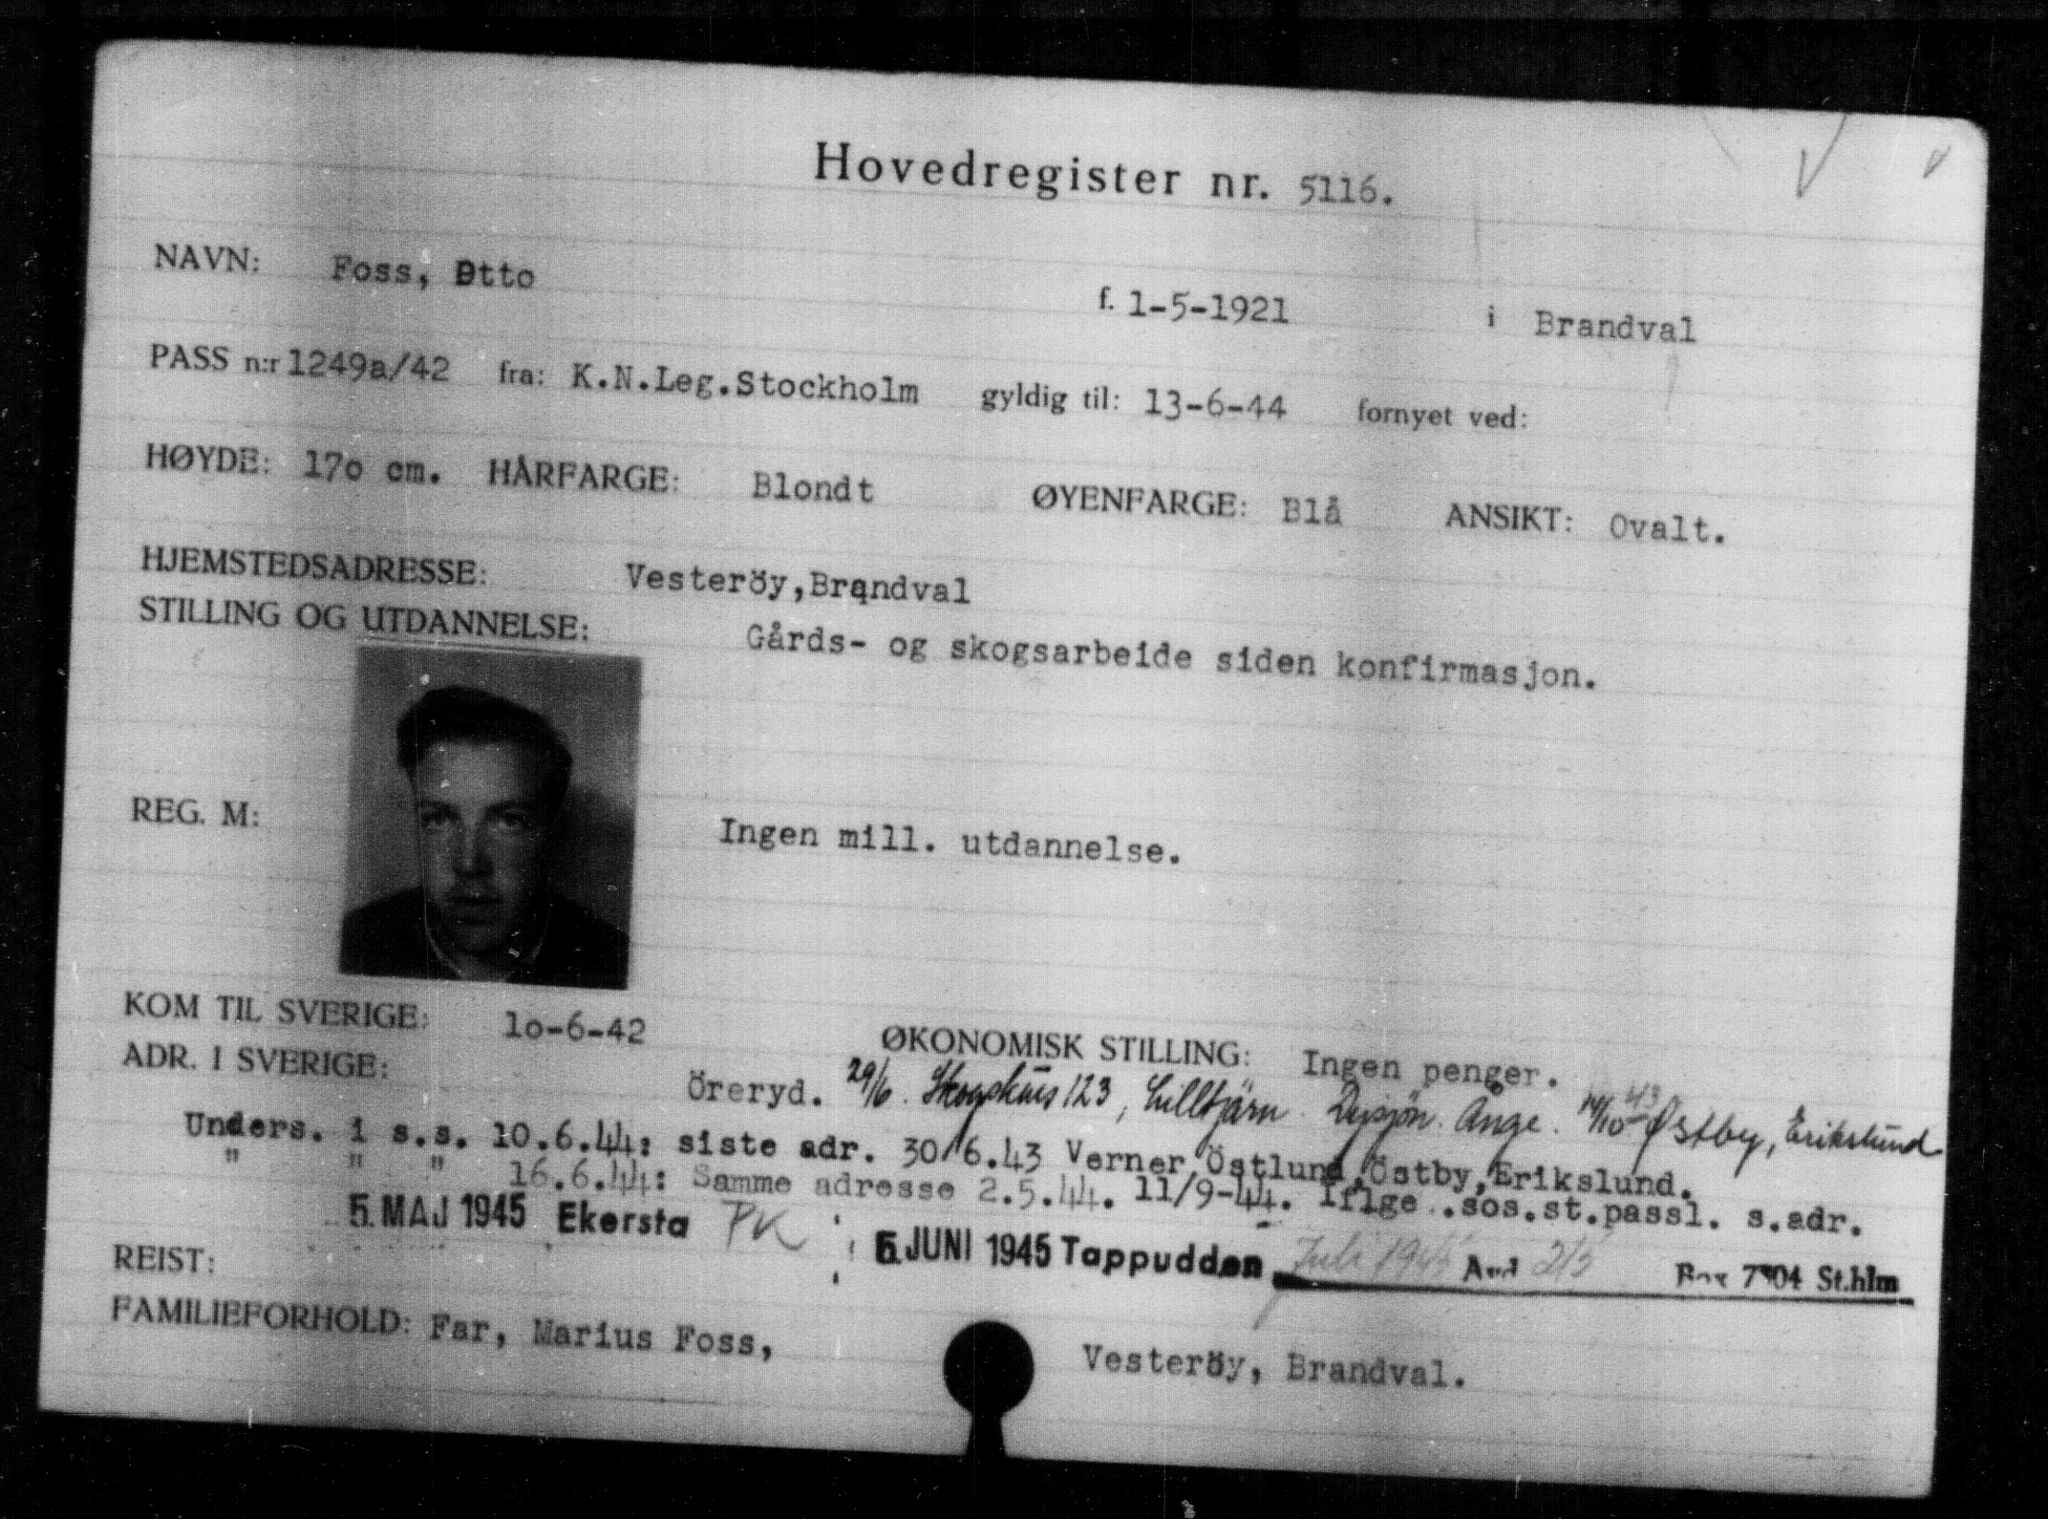 Hovedregister nr. 5116.
NAVN: Foss, Otto f. 1-5-1921 i Brandval
PASS n:r 1249a/42 fra: K.N.Leg.Stockholm gyldig til: 13-6-44 fornyet ved:
HØYDE: 17o cm. HÅRFARGE: Blondt ØYENFARGE: Blå ANSIKT: Ovalt.
HJEMSTEDSADRESSE: Vesteröy,Brandval
STILLING OG UTDANNELSE: Gårds- og skogsarbeide siden konfirmasjon.
REG. M: Ingen mill. utdannelse.
KOM TIL SVERIGE: 1o-6-42 ØKONOMISK STILLING: Ingen penger.
ADR. I SVERIGE: Öreryd. 29/6. 123, Lilltjärn. Ånge. 14/10 43 Østby, Erikslund
Unders. i s.s. 10.6.44: siste adr. 30/6.43 Verner Östlund,Östby,Erikslund.
" " " 16.6.44: Samme adresse 2.5.44. 11/9-44. Iflge .sos.st.passl. s.adr.
5. MAJ 1945 Ekersta PK 5. JUNI 1945 Tappudden Juli 1945 2/5 Box 7304 St.hlm
REIST:
FAMILIEFORHOLD: Far, Marius Foss, Vesteröy, Brandval.